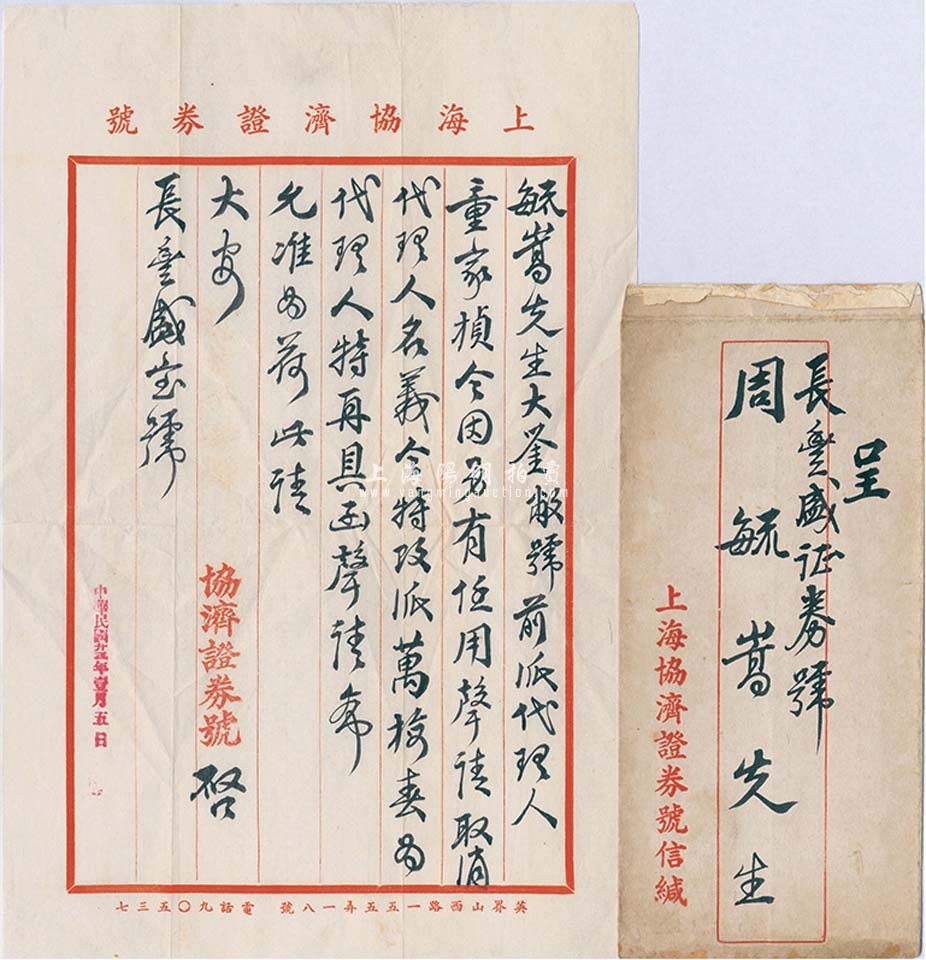 上海協濟證券號
毓嵩先生大鑒敝號前派代理人
童家楨今因另有任用聲請取消
代理人名義今特改派萬梅春為
代理人特再具函聲請希
允准為荷此請
大安
長豐盛寶號
協濟證券號 啓
中華民國廿五年壹月五日
英界山西路一五五弄一八號 電話九〇五三七
呈
長豐盛证券號
周毓嵩先生
上海協濟證券號信緘
上海陽明拍賣
www.yangmingauction.com